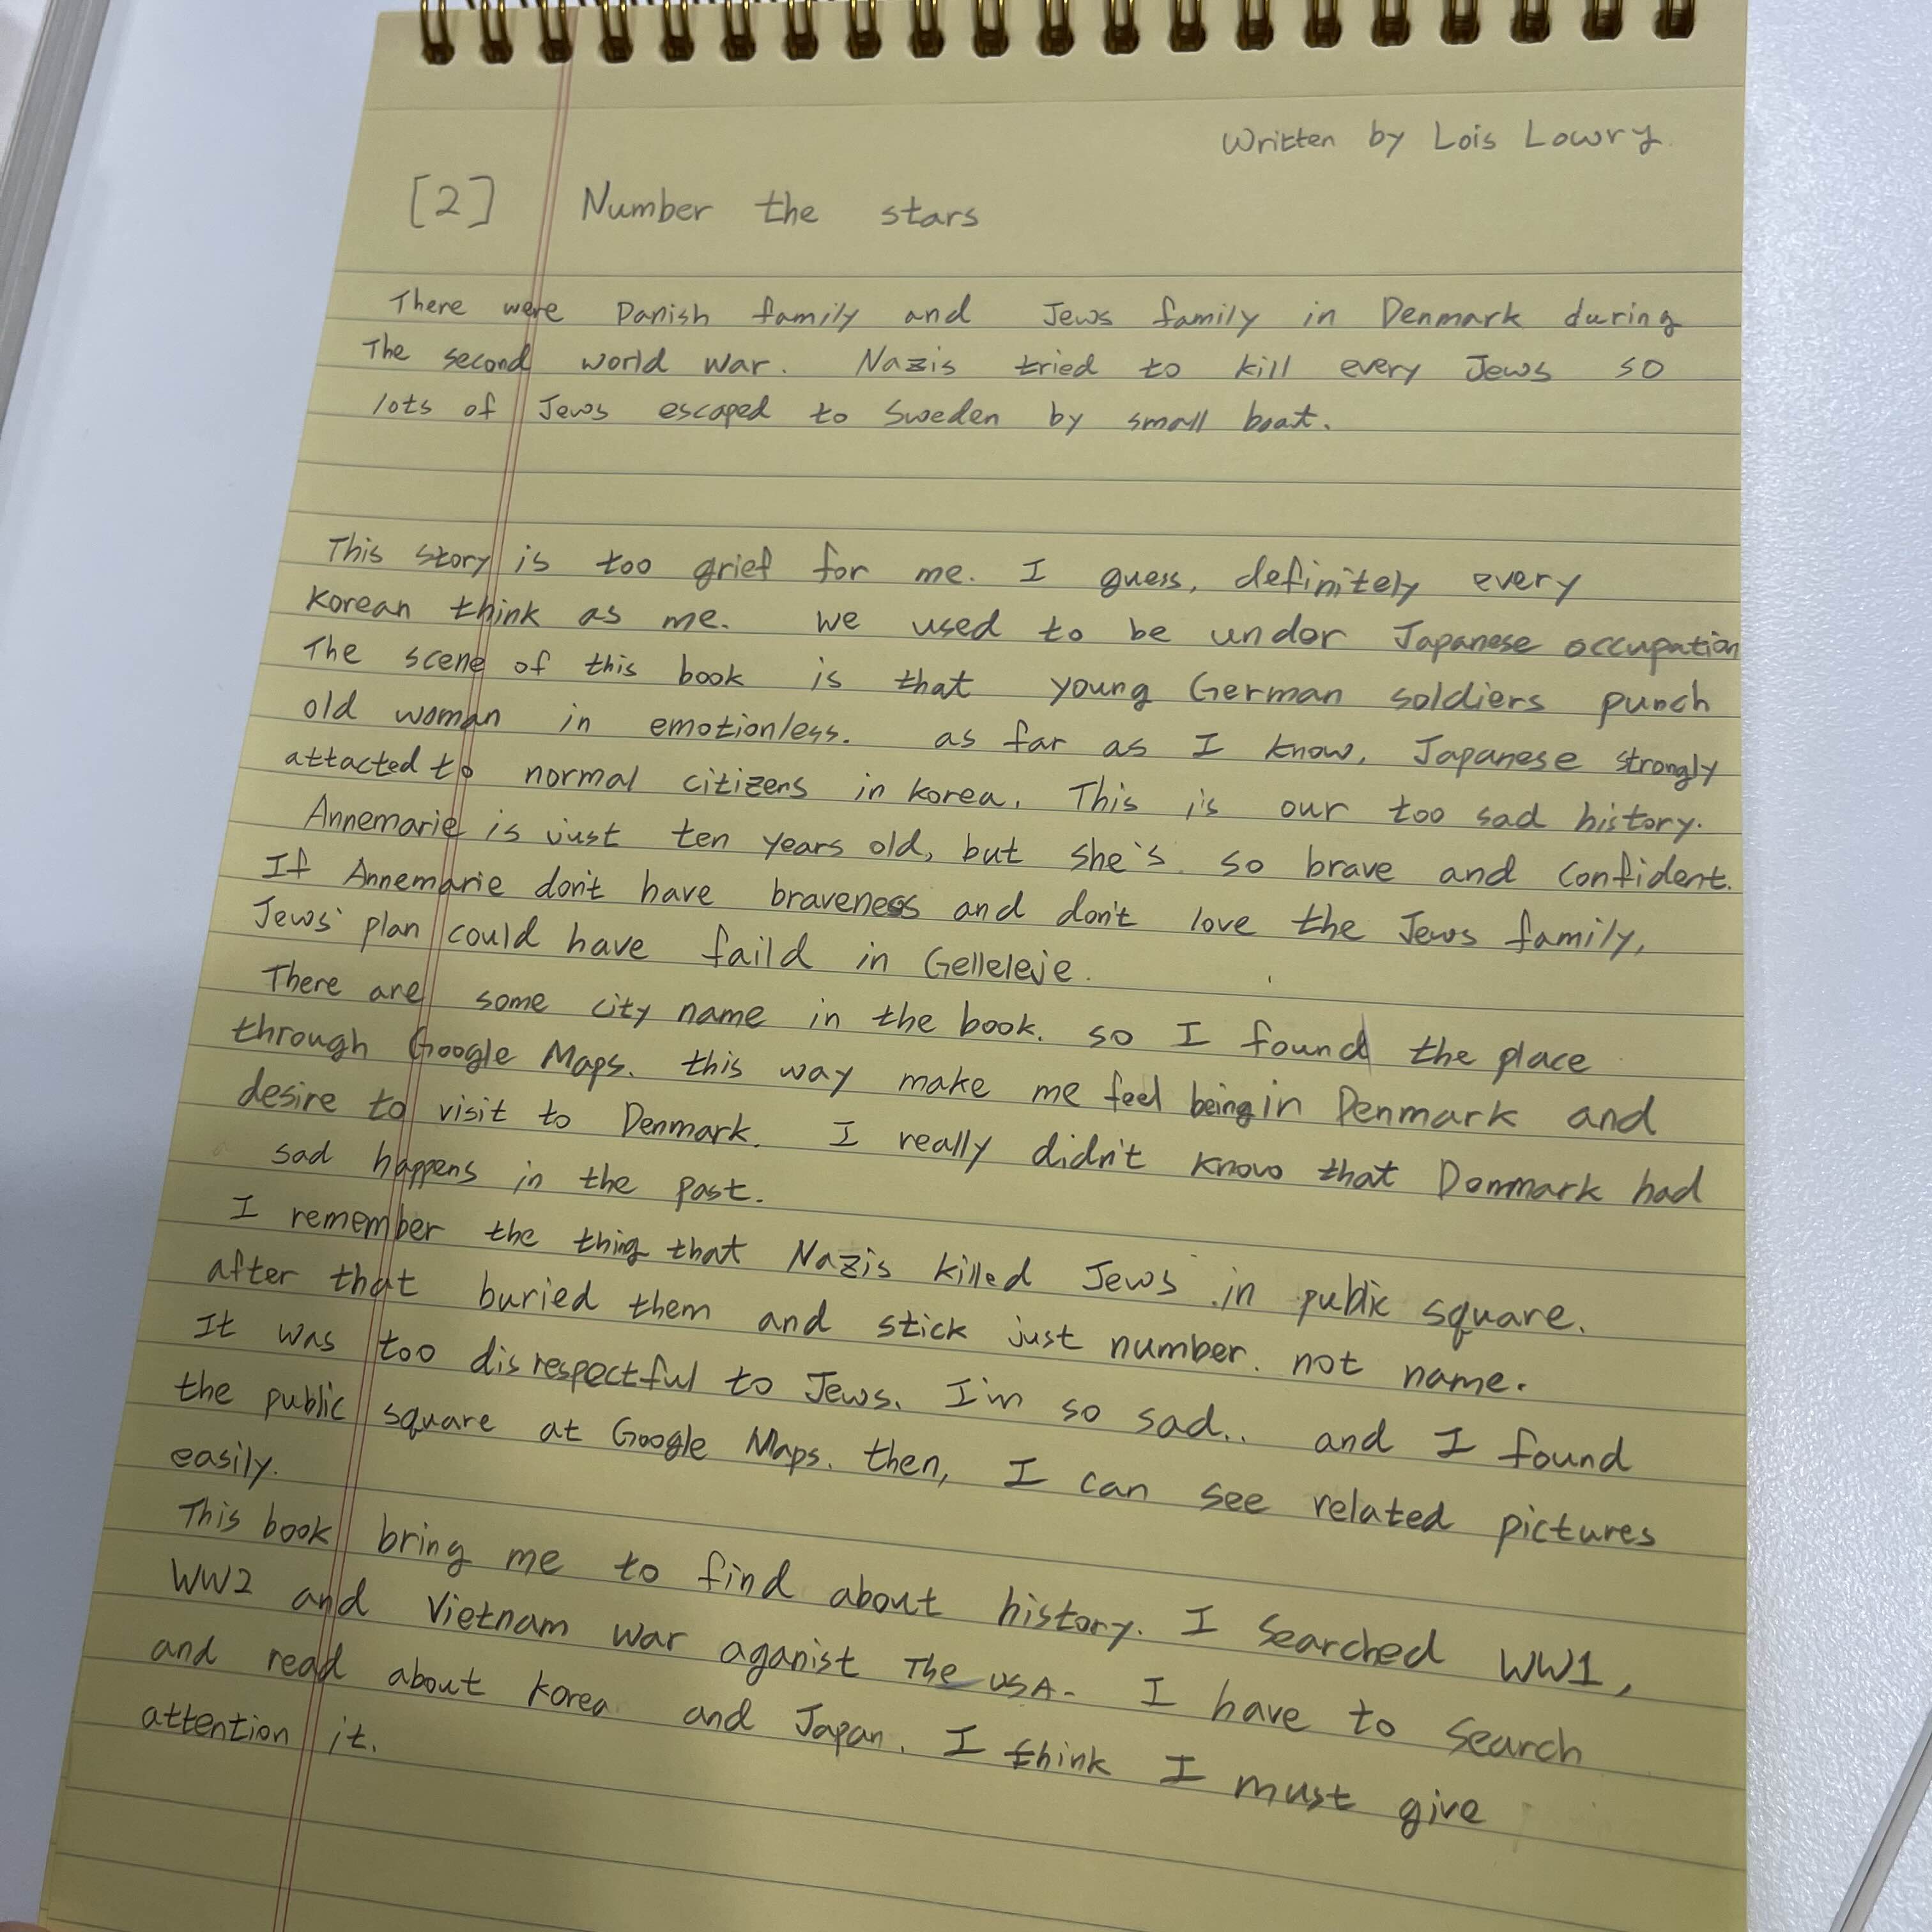 Written by Lois Lowry.
[2] Number the stars
There were Danish family and Jews family in Denmark during
The second world war. Nazis tried to kill every Jews so
lots of Jews escaped to Sweden by small boat.
This story is too grief for me. I guess, definitely every
Korean think as me. we used to be under Japanese occupation
The scene of this book is that young German soldiers punch
old woman in emotionless. as far as I know, Japanese strongly
attacted to normal citizens in korea. This is our too sad history.
Annemarie is just ten years old, but she's so brave and confident.
If Annemarie don't have braveness and don't love the Jews family,
Jews' plan could have faild in Gelleleje.
There are some city name in the book. so I found the place
through Google Maps. this way make me feel being in Denmark and
desire to visit to Denmark. I really didn't know that Donmark had
sad happens in the past.
I remember the thing that Nazis killed Jews in public square.
after that buried them and stick just number. not name.
It was too disrespectful to Jews. I'm so sad.. and I found
the public square at Google Maps. then, I can see related pictures
easily.
This book bring me to find about history. I searched WW1,
WW2 and Vietnam war aganist The USA. I have to search
and read about korea and Japan. I think I must give
attention it.